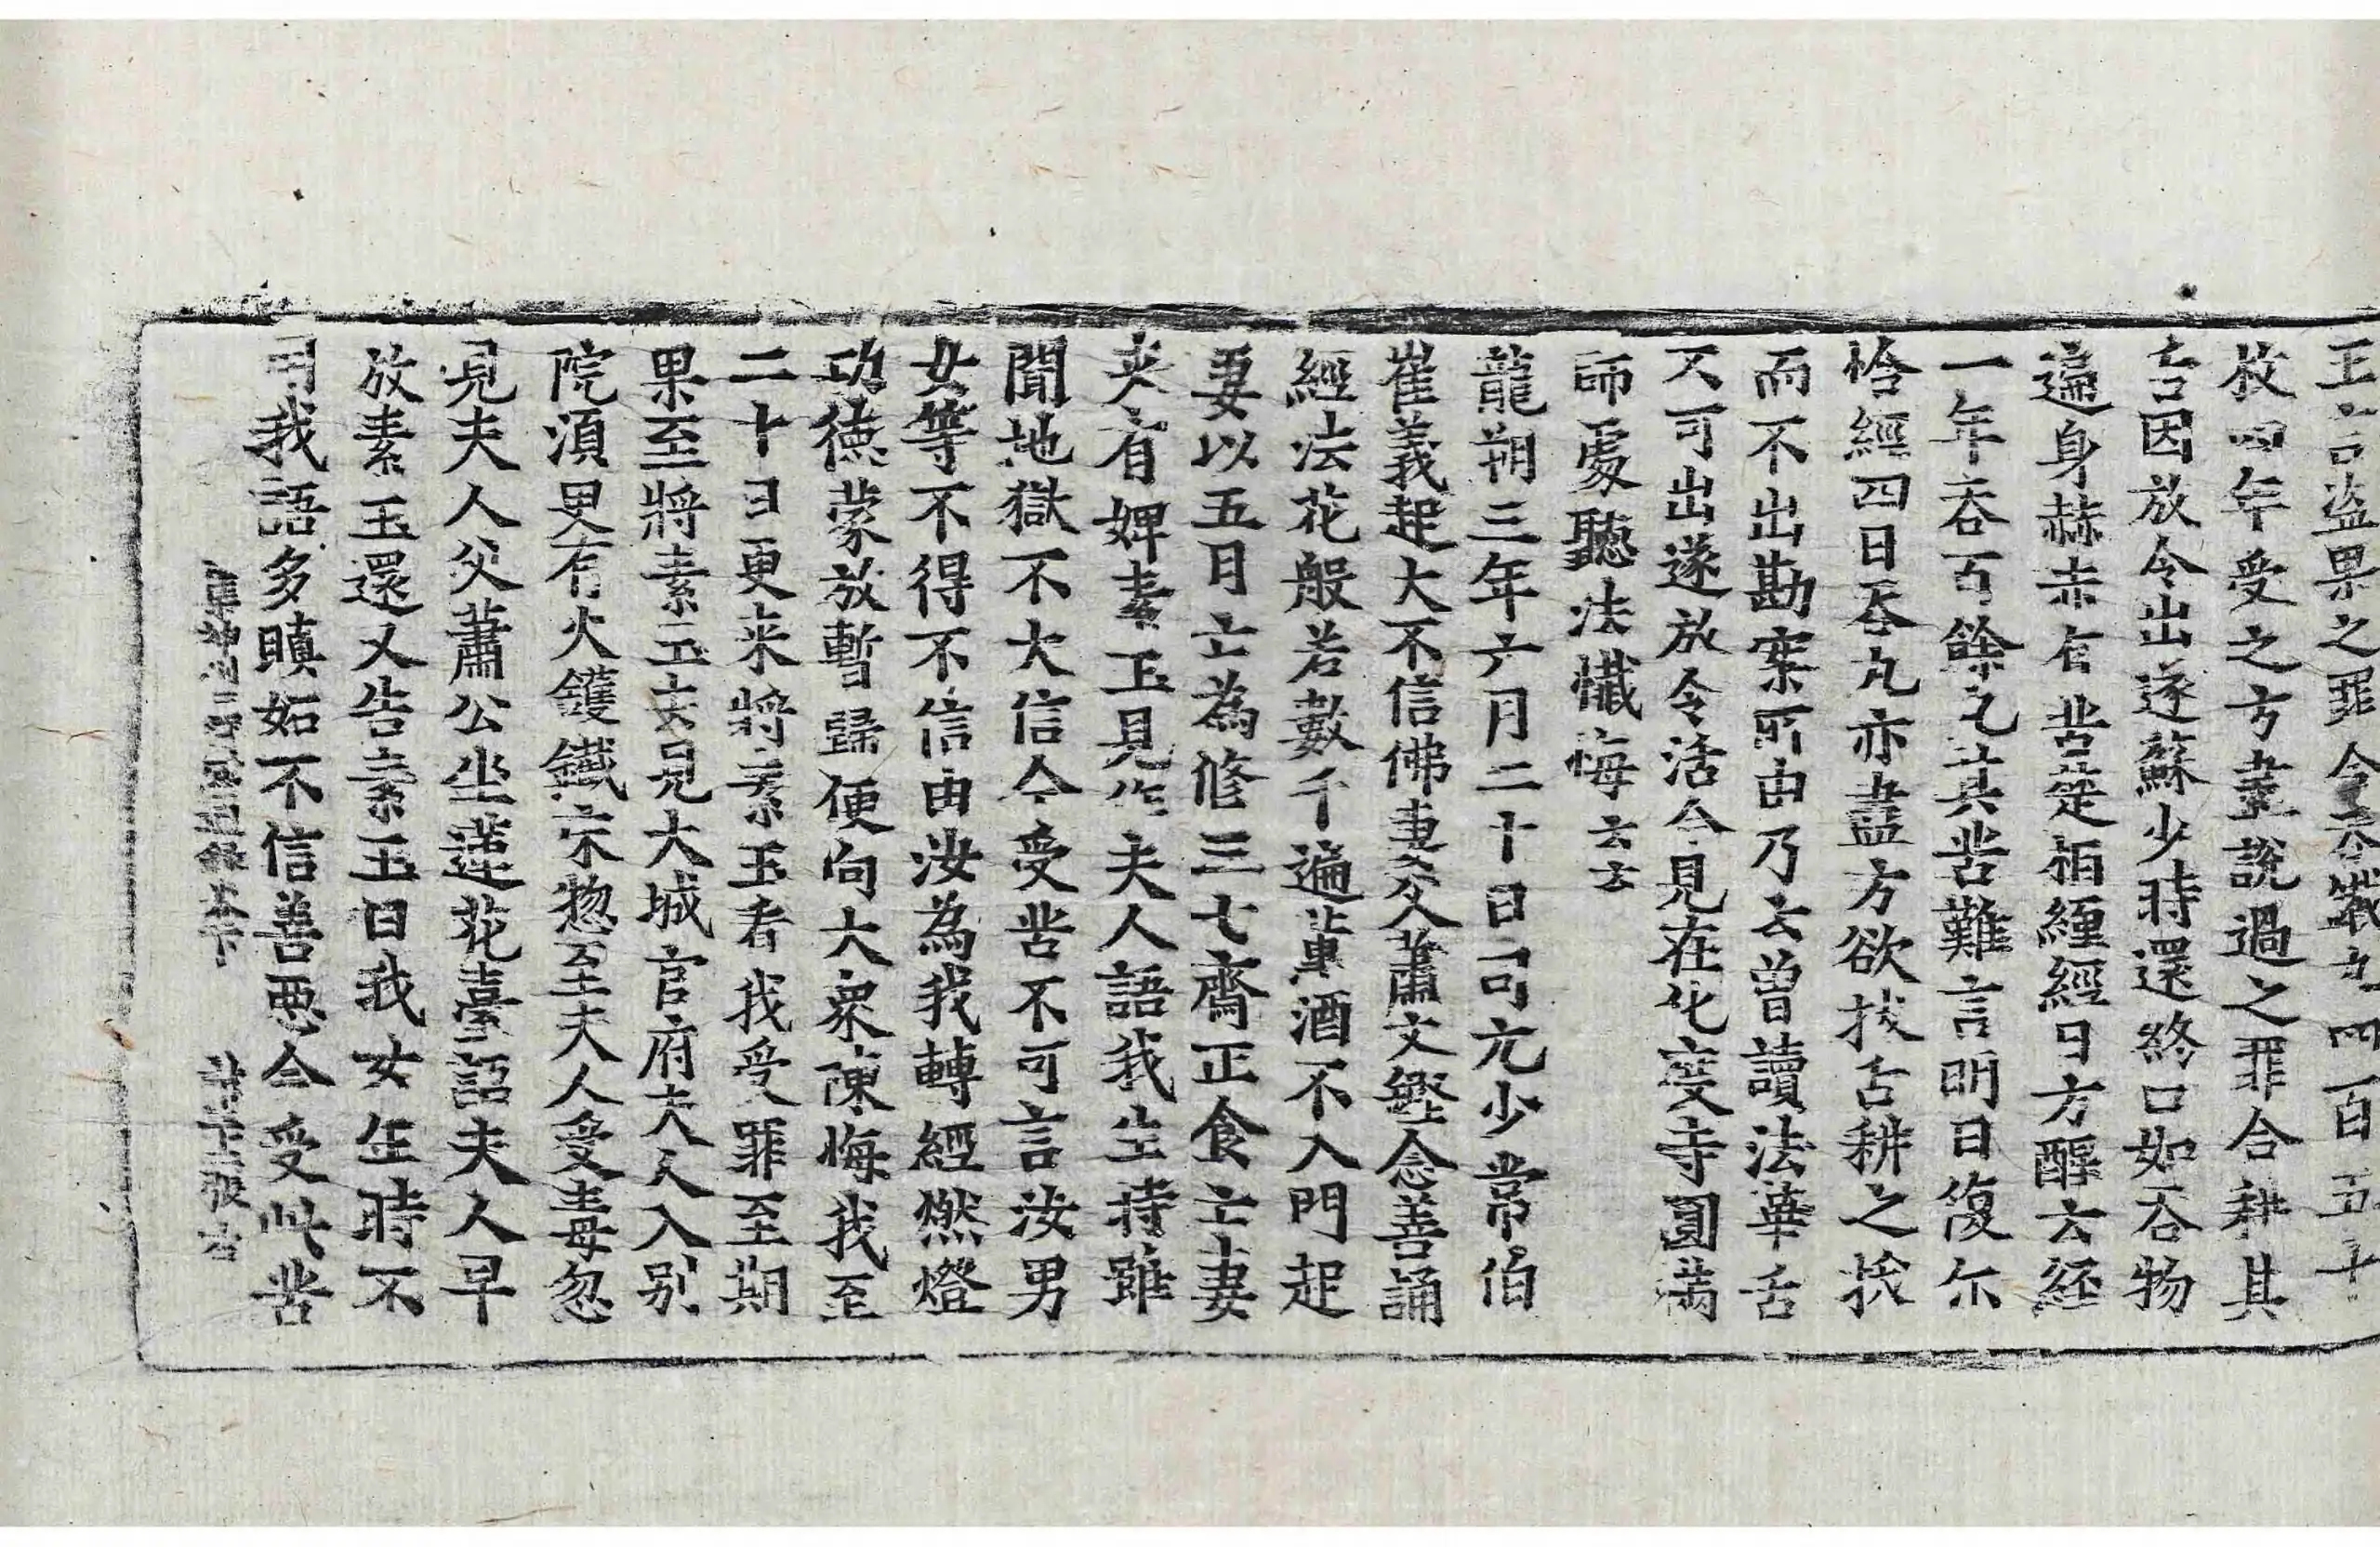 王言盜果之罪今吞鐵丸四百五十
枚四年受之方盡說過之罪合耕其
舌因放令出遂蘇少時還終口如吞物
遍身赫赤有苦楚相纏經日方醒云經
一年吞百餘丸其苦難言明日復尒
恰經四日吞丸亦盡方欲拔舌耕之挨
而不出勘案所由乃云曽讀法華舌
不可出遂放令活今見在化度寺圓滿
師處聽法懺悔云云
龍朔三年六月二十日司元少常伯
崔義起大不信佛妻父蕭文鏗念善誦
經法花般若數千遍葷酒不入門起
妻以五月亡為修三七齋正食亡妻
來有婢素玉見作夫人語我生時雖
聞地獄不大信今受苦不可言汝男
女等不得不信由汝為我轉經燃燈
功德蒙放暫歸便向大衆陳悔我至
二十日更来將素玉看我受罪至期
果至將素玉去見大城官府夫人入別
院湏臾有火鑊鐵床惣至夫人受毒忽
見夫人父蕭公坐蓮花臺詔夫人早
放素玉還又告素玉曰我女生時不
用我語多瞋妬不信善悪今受此苦
集神州三寳感通録卷下